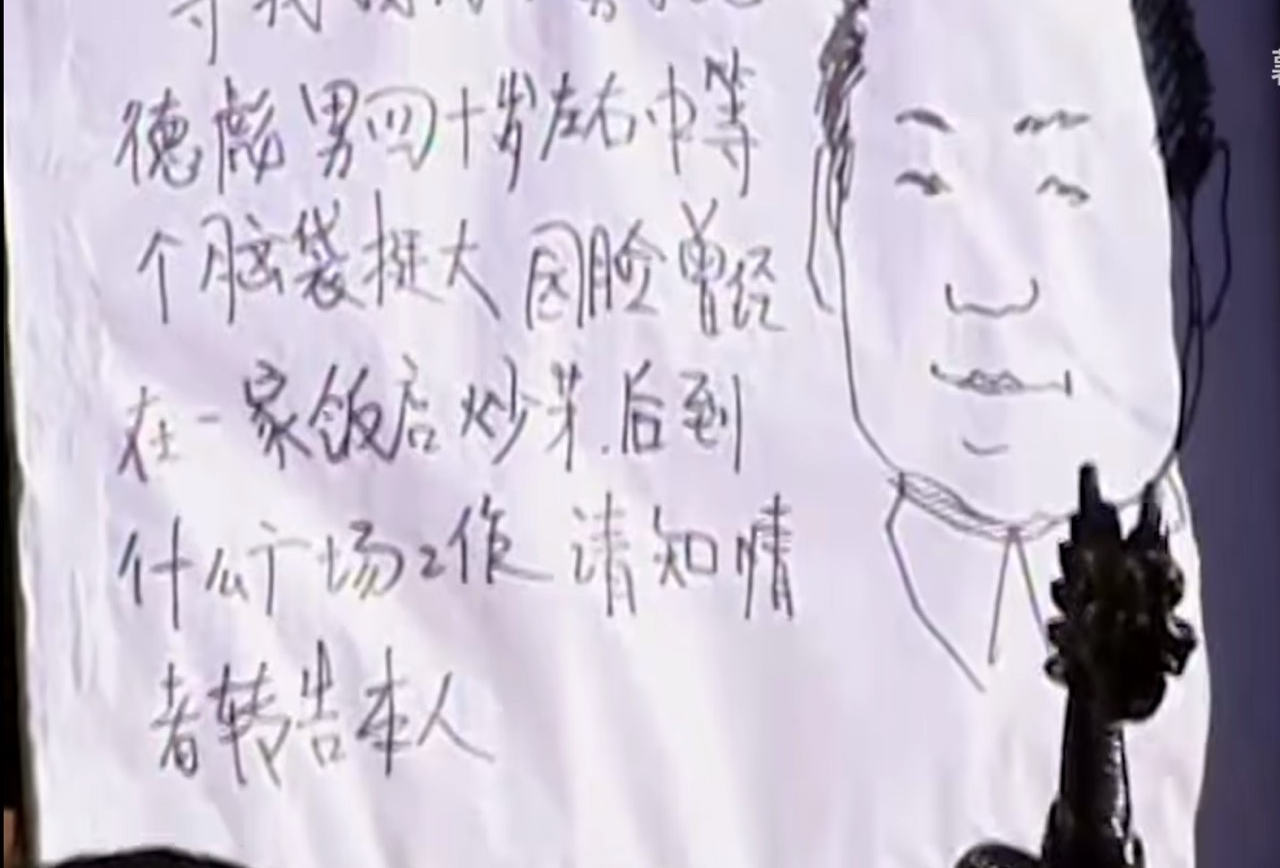 德彪男四十岁左右中等
个脑袋挺大园脸曾经
在一家饭店炒菜.后到
什么广场工作 请知情
者转告本人